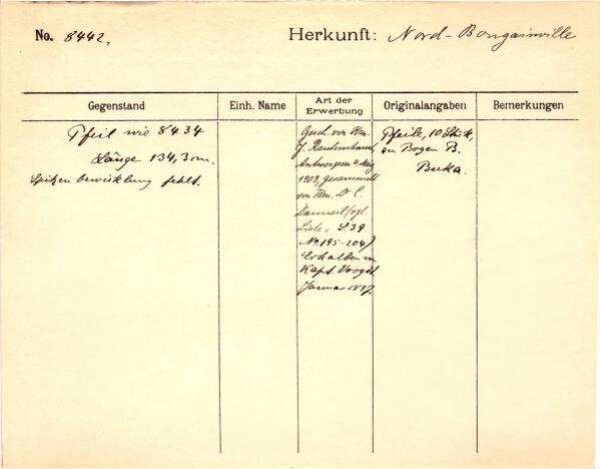 No. 8442.
Herkunft: Nord-Bougainville
Gegenstand
Einh. Name
Art der Erwerbung
Originalangaben
Bemerkungen
Pfeil wie 8434
Länge 134,3 cm.
Spitzenbewicklung fehlt.
Gesch. von Hrn.
J.
Antwerpen
1903, gesammelt
von Hrn. Dr C.
Liste, S. 39
No 195-204)
Erhalten von
Kapt.
Januar
Pfeile, 10 Stück,
zu Bogen B.
Buka.